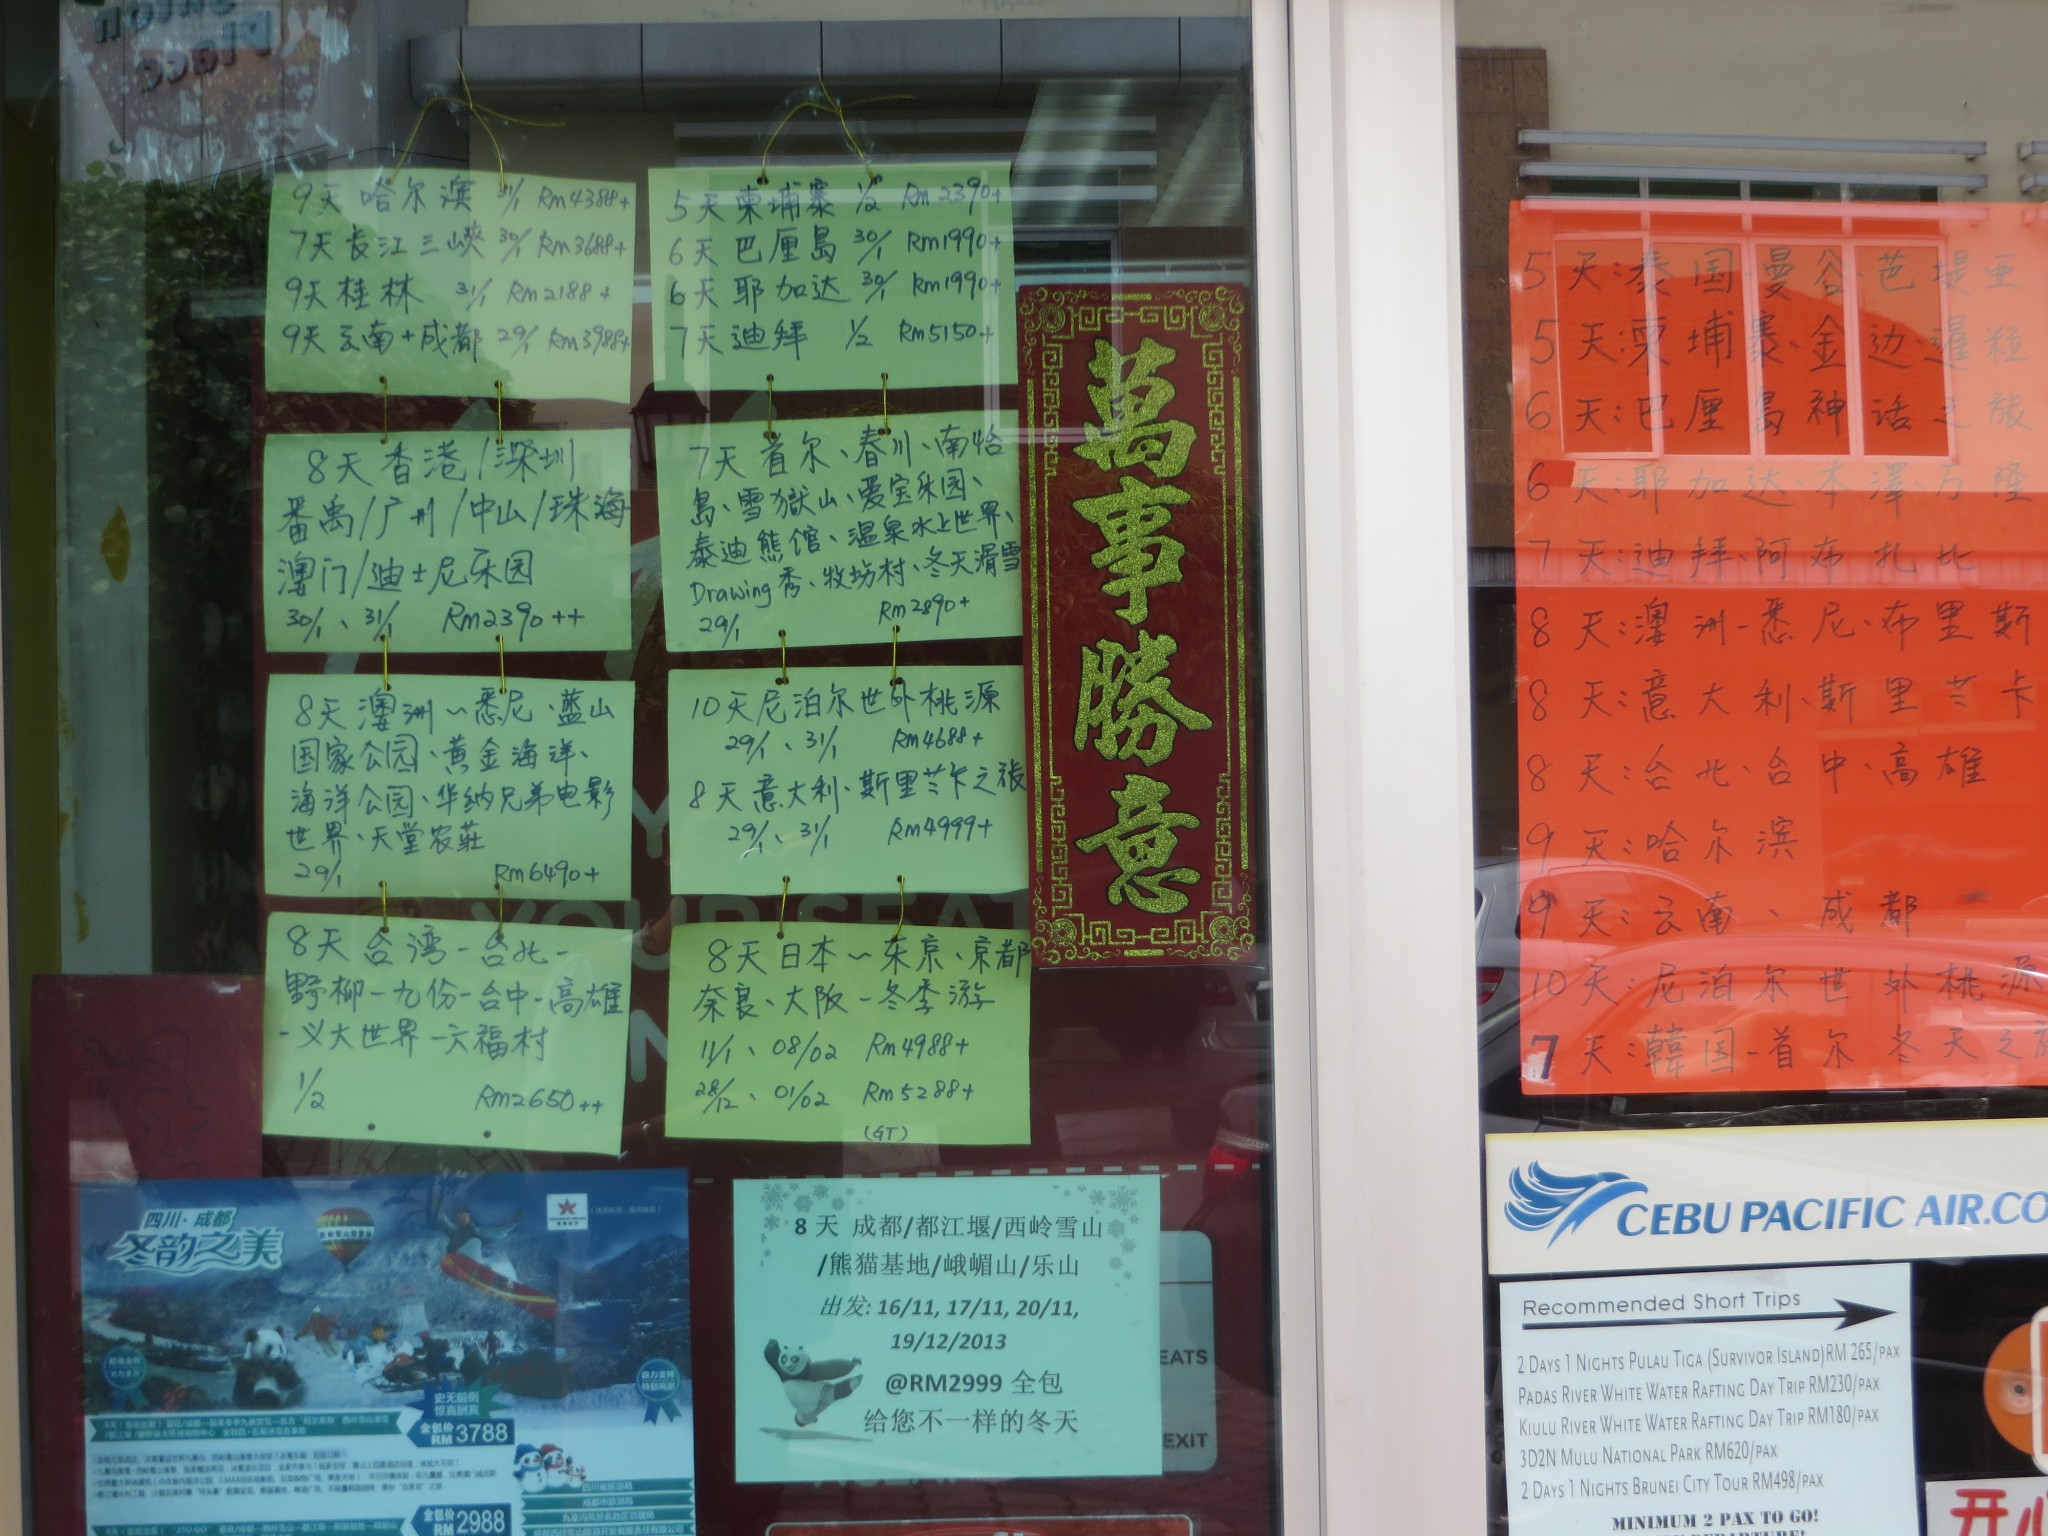 9天 哈尔滨 31/1 Rm4388+
7天長江三峡 30/1 Rm3688+
9天桂林 31/1 Rm2188+
9天云南+成都 29/1 Rm3988+
8天香港/深圳
番禹/广州/中山/珠海
澳门/迪士尼乐园
30/1、31/1 Rm2390++
8天澳洲~悉尼、蓝山
国家公园、黄金海洋、
海洋公园、华纳兄弟电影
世界、天堂农莊
29/1 Rm6490+
8天台湾-台北-
野柳-九份-台中-高雄
-义大世界-六福村
1/2 Rm2650++
5天柬埔寨 1/2 Rm2390+
6天巴厘島 30/1 Rm1990+
6天耶加达 30/1 Rm1990+
7天迪拜 1/2 Rm5150+
7天首尔、春川、南怡
島、雪獄山、爱宝乐园、
泰迪熊馆、温泉水上世界、
Drawing秀、牧场村、冬天滑雪
29/1 Rm2890+
10天尼泊尔世外桃源
29/1、31/1 Rm4688+
8天意大利、斯里兰卡之旅
29/1、31/1 Rm4999+
8天日本~东京、京都
奈良、大阪-冬季游
11/1、08/02 Rm4988+
28/12、01/02 Rm5288+
(GT)
萬事勝意
四川·成都
冬韵之美
史无前例
惊喜酬宾
全包价
RM 3788
全包价
RM 2988
8天 成都/都江堰/西岭雪山
/熊猫基地/峨嵋山/乐山
出发: 16/11, 17/11, 20/11,
19/12/2013
@RM2999 全包
给您不一样的冬天
EATS
EXIT
5天:泰国-曼谷、芭堤亚
5天:柬埔寨、金边、暹粒
6天:巴厘島神话之旅
6天:耶加达、本澤、万隆
7天:迪拜、阿布扎比
8天:澳洲-悉尼、布里斯
8天:意大利、斯里兰卡
8天:台北台中、高雄
9天:哈尔滨
9天:云南、成都
10天:尼泊尔世外桃源
7天:韓国-首尔冬天之旅
CEBU PACIFIC AIR.CO
Recommended Short Trips
2 Days 1 Nights Pulau Tiga (Survivor Island)RM 265/pax
Padas River White Water Rafting Day Trip RM230/pax
Kiulu River White Water Rafting Day Trip RM180/pax
3D2N Mulu National Park RM620/pax
2 Days 1 Nights Brunei City Tour RM498/pax
MINIMUM 2 PAX TO GO!
开心